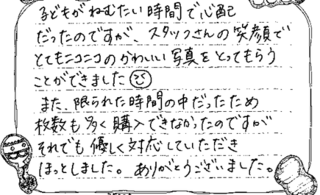 子どもがねむたい時間で心配
だったのですが、スタッフさんの笑顔で
とてもニコニコのかわいい写真をとってもらう
ことができました
また、限られた時間の中だったため
枚数も多く購入できなかったのですが
それでも優しく対応していただき
ほっとしました。ありがとうございました。